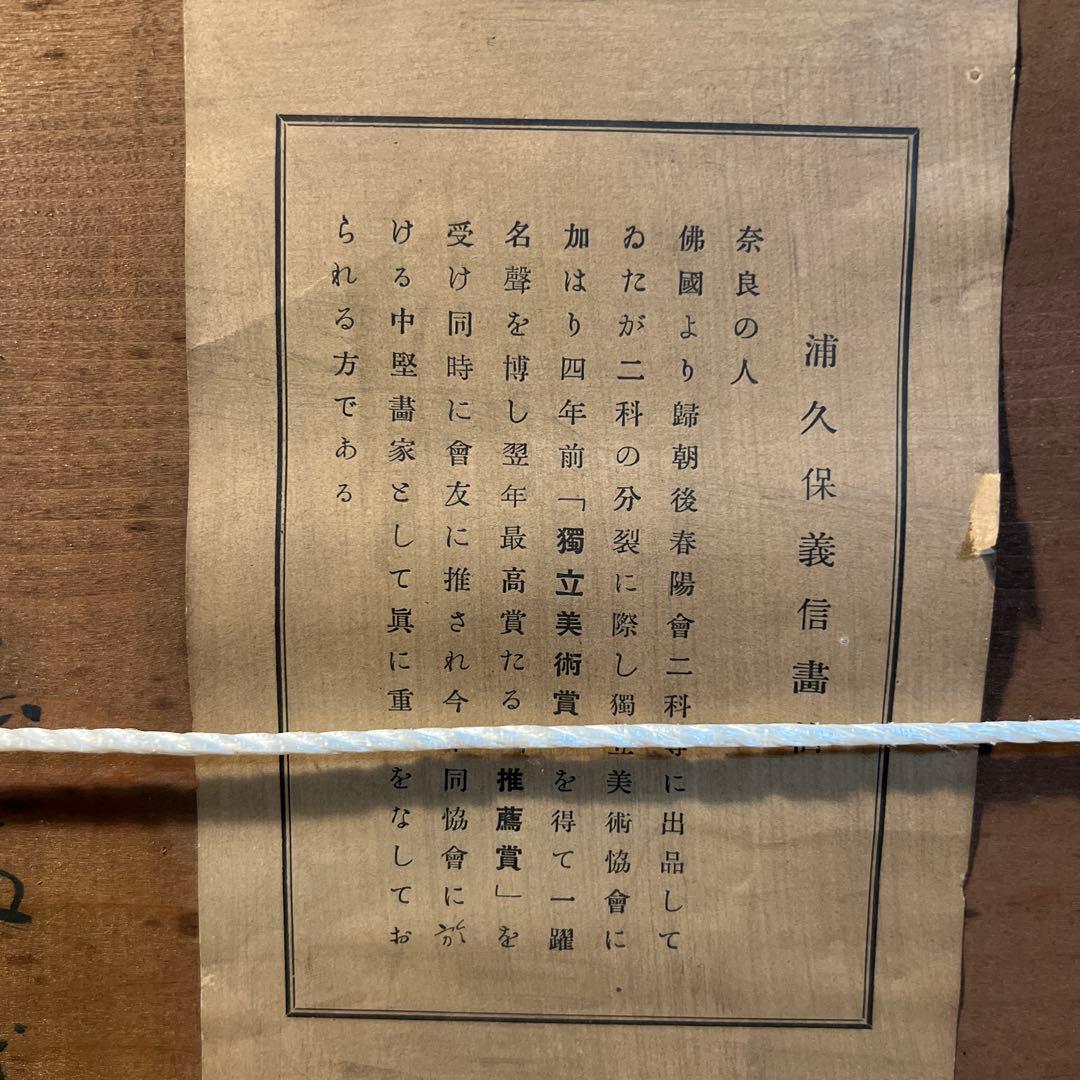 浦久保義信畵
奈良の人
佛國より歸朝後春陽會二科に出品して
ゐたが二科の分裂に際し獨立美術協會に
加はり四年前「獨立美術賞を得て一躍
名聲を博し翌年最高賞たる推薦賞」を
受け同時に會友に推され今同協會に於
ける中堅畵家として眞に重をなしてお
られる方である